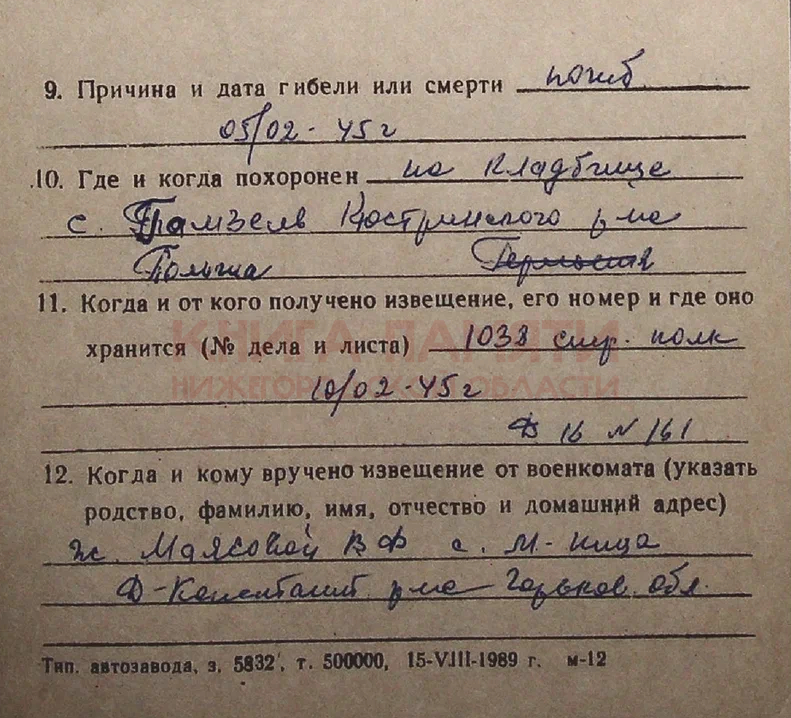 9. Причина и дата гибели или смерти погиб
05/02-45 г
10. Где и когда похоронен на кладбище
с. Грамзель Кюстринского р-на
Польша Германия
11. Когда и от кого получено извещение, его номер и где оно
КНИГА ПАМЯТИ
хранится (№ дела и листа) 1038 стр. полк
НИЖЕГОРОДСКОЙ ОБЛАСТИ
10/02-45 г
Д 16 N 161
12. Когда и кому вручено извещение от военкомата (указать
родство, фамилию, имя, отчество и домашний адрес)
ж. Маясовой В Ф с.
Д-Константин р-на Горьков. обл.
Тип. автозавода, з. 5832, т. 500000, 15-VIII-1989 г. м-12